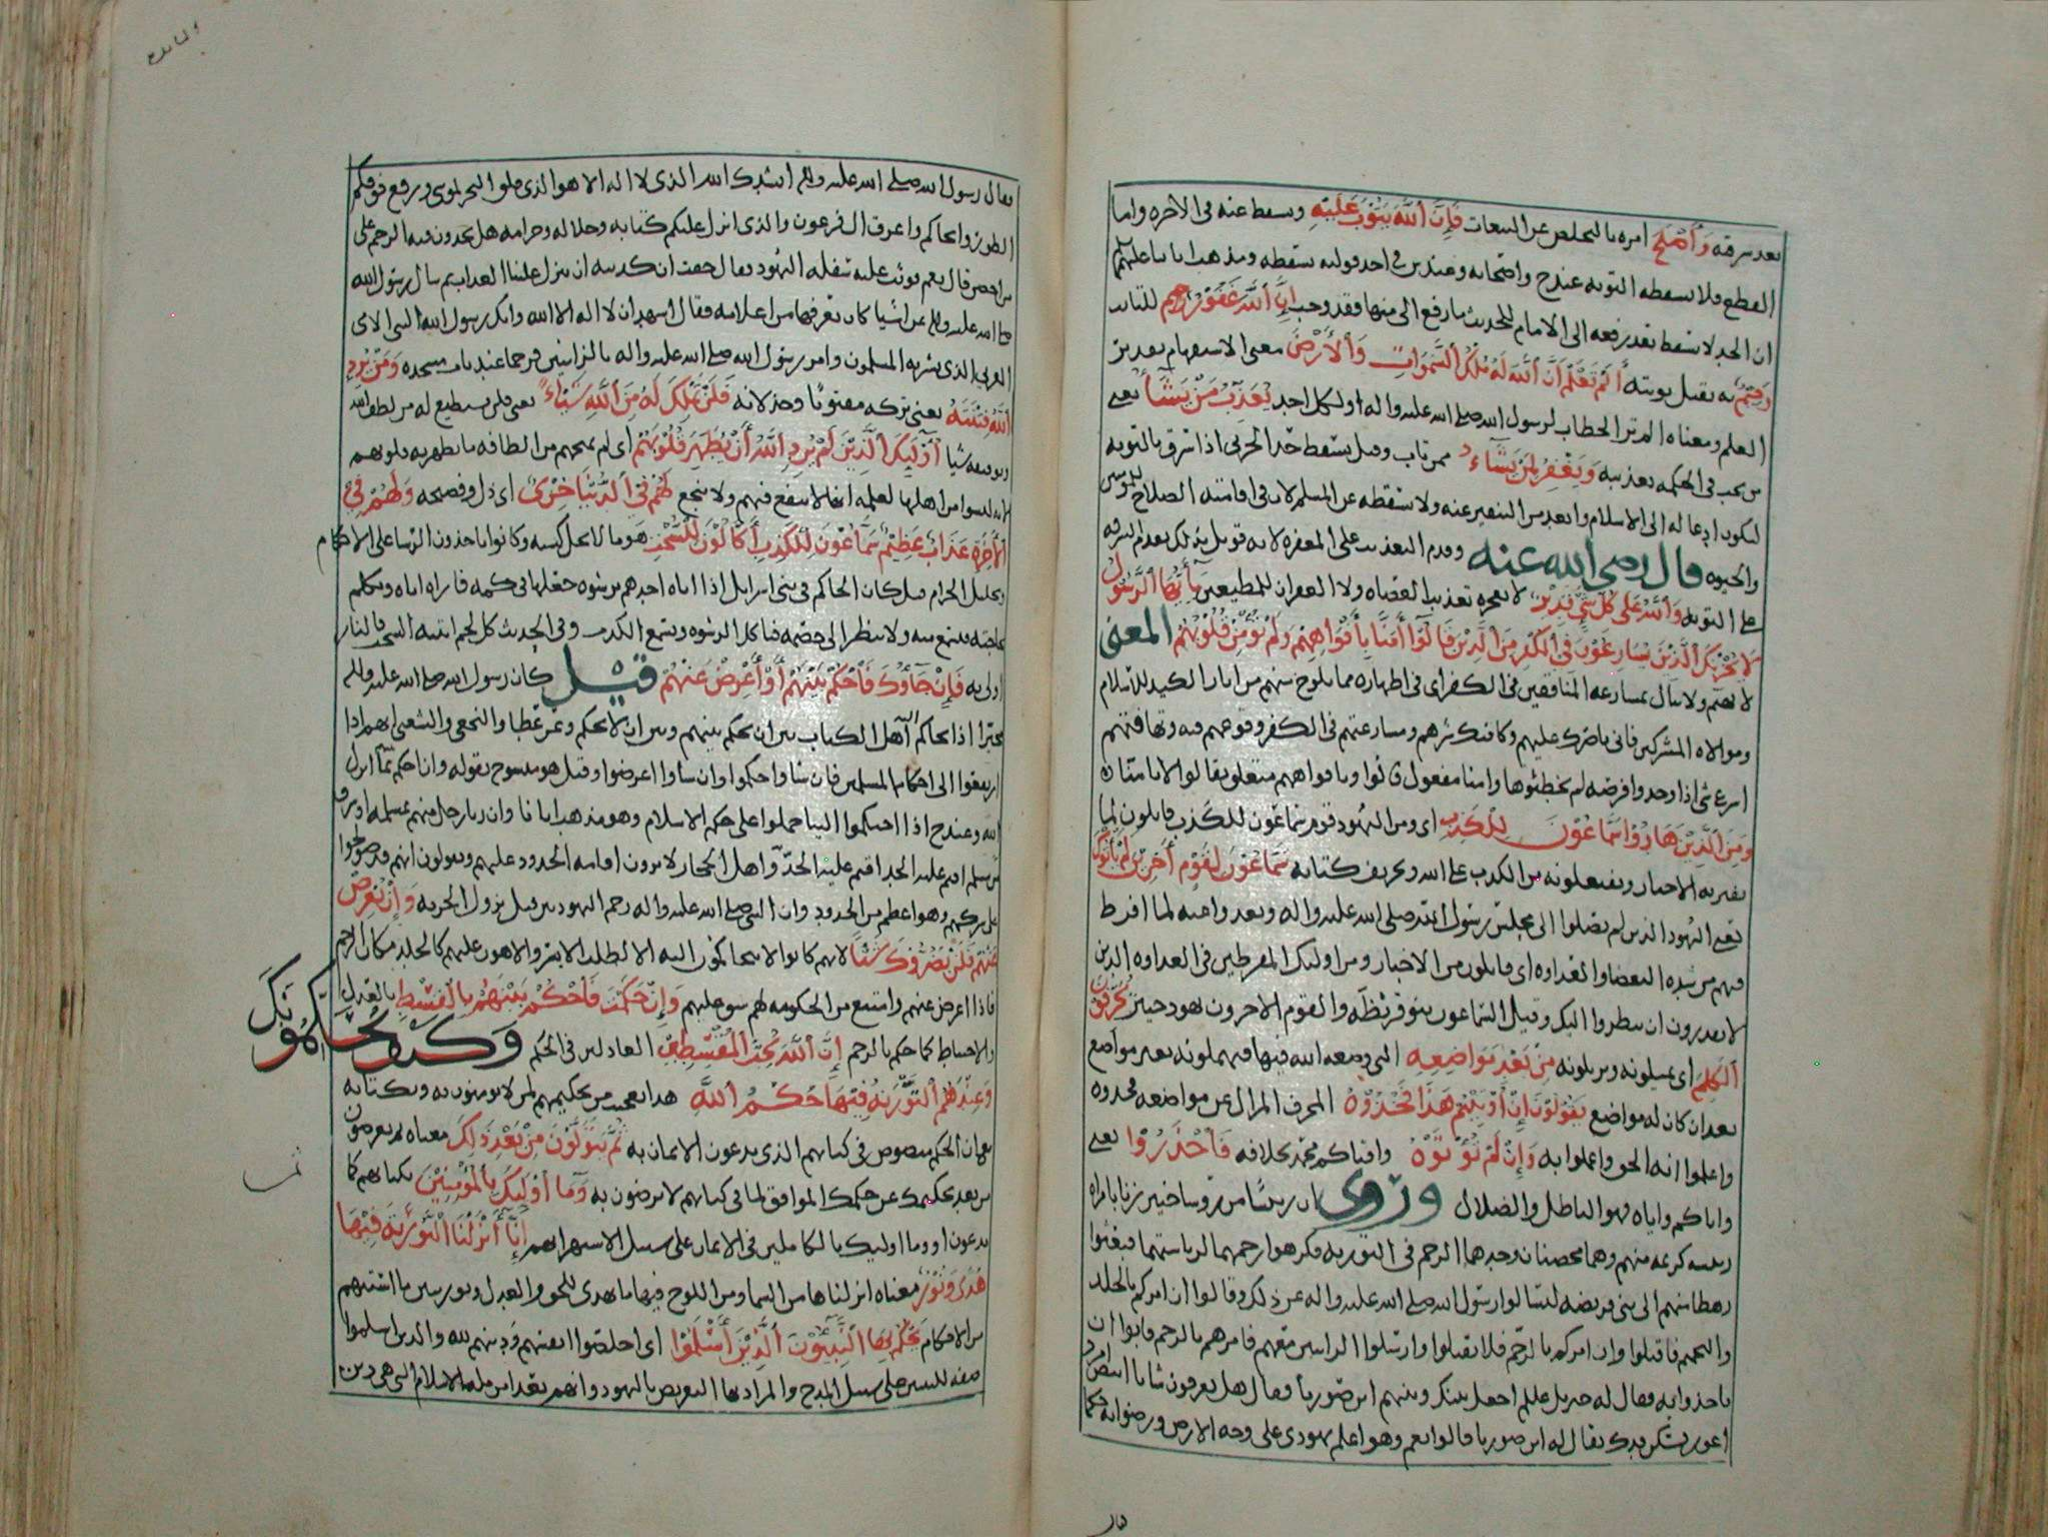 بعد سرقه وَأَصْلَحَ امره بالتخلص عن التبعات فَإِنَّ ٱللَّهَ يَتُوبُ عَلَيْهِ ويسقط عنه في الآخره واما
القطع فلا تسقطه التوبه عند ح واصحابه وعند ش في احد قوليه تسقطه ومذهب ابائنا عليهم
ان الحد لا يسقط بعد رفعه الى الامام للحديث ما رفع الي منها فقد وجب إِنَّ ٱللَّهَ غَفُورٌ رَّحِيمٌ للتائب
به يقبل توبته أَلَمْ تَعْلَمْ أَنَّ ٱللَّهَ لَهُ مُلْكُ ٱلسَّمَٰوَاتِ وَٱلْأَرْضِ معنى الاستفهام
العلم ومعناه الم تر الخطاب لرسول الله صلى الله عليه واله او لكل احد يُعَذِّبُ مَنْ يَشَآءُ يعني
من يجب في الحكمه تعذيبه وَيَغْفِرُ لِمَنْ يَشَآءُ ممن تاب وقيل يسقط حد الحربي اذا سرق بالتوبه
ليكون ادعا له الى الاسلام وابعد من التنفير عنه ولا تسقطه عن المسلم لان في اقامته الصلاح للمؤمنين
والحيوه قال رضي الله عنه وقدم التعذيب على المغفره لانه قوبل بذلك تقدم السرقه
على التوبه وَٱللَّهُ عَلَىٰ كُلِّ شَيْءٍ قَدِيرٌ لا يعجزه تعذيب العصاه ولا الغفران للمطيعين يَٰٓأَيُّهَا ٱلرَّسُولُ
لَا يَحْزُنْكَ ٱلَّذِينَ يُسَارِعُونَ فِي ٱلْكُفْرِ مِنَ ٱلَّذِينَ قَالُوٓا۟ آمَنَّا بِأَفْوَاهِهِمْ وَلَمْ تُؤْمِنْ قُلُوبُهُمْ المعنى
لا تهتم ولا تبال بمسارعه المنافقين في الكفر اي في اظهاره مما يلوح منهم من اثار الكيد للاسلام
وموالاه المشركين فاني ناصرك عليهم وكافيك شرهم ومسارعتهم في الكفر وقوعهم فيه وتهافتهم
اسرع شي اذا وجدوا فرصه لم يخطئوها وامنا مفعول قالوا وبافواههم متعلق بقالوا لا بامنا
وَمِنَ ٱلَّذِينَ هَادُوا۟ سَمَّاعُونَ لِلْكَذِبِ اي ومن اليهود قوم سماعون للكذب قابلون لما
يفتريه الاحبار ويفتعلونه من الكذب على الله وتحريف كتابه سَمَّاعُونَ لِقَوْمٍ آخَرِينَ لَمْ يَأْتُوكَ
يعني اليهود الذين لم يصلوا الى مجلس رسول الله صلى الله عليه واله وتجافوا عنه لما افرط
فيهم من شده البغضا والعداوه اي قابلون من الاحبار ومن اولئك المفرطين في العداوه الذين
لا يقدرون ان ينظروا اليك وقيل السماعون بنو قريظه والقوم الاخرون يهود خيبر يُحَرِّفُونَ
ٱلْكَلِمَ اي يميلونه ويزيلونه مِنْ بَعْدِ مَوَاضِعِهِ التي وضعه الله فيها فيهملونه بغير مواضع
بعد ان كان له مواضع يَقُولُونَ إِنْ أُوتِيتُمْ هَٰذَا فَخُذُوهُ المحرف المزال عن مواضعه فخذوه
واعلموا انه الحق واعملوا به وَإِنْ لَمْ تُؤْتَوْهُ وافتاكم محمد بخلافه فَٱحْذَرُوا۟ يعني
واياكم واياه فهو الباطل والضلال وروى ان شريفا من خيبر زنا بامراه
منهم وهما محصنان وحدهما الرجم في التوريه فكرهوا رجمهما لرياستهما فبعثوا
رهطا منهم الى بني قريضه ليسالوا رسول الله صلى الله عليه واله عن ذلك وقالوا ان امركم بالجلد
والتحميم فاقبلوا وان امركم بالرجم فلا تقبلوا وارسلوا الزانيين معهم فامرهم بالرجم فابوا ان
ياخذوا به فقال له جبريل عليلم اجعل بينك وبينهم ابن صوريا فقال هل تعرفون شابا ابيض امرد
اعور يسكن فدك يقال له ابن صوريا قالوا نعم وهو اعلم يهودي على وجه الارض ورضوا به حكما
فقال رسول الله صلى الله عليه واله انشدك الله الذي لا اله الا هو الذي فلق البحر لموسى ورفع فوقكم
الطور وانجاكم واغرق ال فرعون والذي انزل عليكم كتابه وحلاله وحرامه هل تجدون فيه الرجم على
من احصن قال نعم فوثب عليه سفله اليهود فقال خفت ان كذبته ان ينزل علينا العذاب ثم سال رسول الله
صلى الله عليه واله عن اشيا كان يعرفها من اعلامه فقال اشهد ان لا اله الا الله وانك رسول الله النبي الامي
العربي الذي بشر به المسلمون وامر رسول الله صلى الله عليه واله بالزانيين فرجما عند باب مسجده وَمَنْ يُرِدِ
ٱللَّهُ فِتْنَتَهُ يعني تركه مفتونا وخذلانه فَلَنْ تَمْلِكَ لَهُ مِنَ ٱللَّهِ شَيْئًا يعني فلن تستطيع له من لطف الله
وتوفيقه شيا أُو۟لَٰٓئِكَ ٱلَّذِينَ لَمْ يُرِدِ ٱللَّهُ أَنْ يُطَهِّرَ قُلُوبَهُمْ اي لم يمنحهم من الطافه ما تطهر به قلوبهم
لانهم ليسوا من اهلها لعلمه انها لا تنفع فيهم ولا تنجع لَهُمْ فِي ٱلدُّنْيَا خِزْيٌ اي ذل وفضيحه وَلَهُمْ فِي
ٱلْآخِرَةِ عَذَابٌ عَظِيمٌ سَمَّاعُونَ لِلْكَذِبِ أَكَّالُونَ لِلسُّحْتِ هو ما لا يحل كسبه وكانوا ياخذون الرشا على الاحكام
وتحليل الحرام قيل كان الحاكم في بني اسرايل اذا اتاه احدهم برشوه جعلها في كمه فاراه اياه وتكلم
بحاجته فيسمع منه ولا ينظر الى خصمه فياكل الرشوه ويسمع الكذب وفي الحديث كل لحم انبته السحت فالنار
اولى به فَإِنْ جَآءُوكَ فَٱحْكُمْ بَيْنَهُمْ أَوْ أَعْرِضْ عَنْهُمْ قيل كان رسول الله صلى الله عليه واله
مخيرا اذا تحاكم اهل الكتاب بين ان يحكم بينهم وبين ان لا يحكم وعن عطا والنخعي والشعبي انهم اذا
ارتفعوا الى احكام المسلمين فان شاوا حكموا وان شاوا اعرضوا وقيل هو منسوخ بقوله وان احكم بما انزل
الله وعند ح اذا احتكموا الينا حملوا على حكم الاسلام وهو مذهب ابائنا وان زنا رجل منهم بمسلمه او سرق
من مسلم اقيم عليه الحد اقيم عليه الحد واهل الحجاز لا يرون اقامه الحدود عليهم ويقولون انهم قد صولحوا
على شركهم وهو اعظم من الحدود وان النبي صلى الله عليه واله رجم اليهوديين قبل نزول الجزيه وَإِنْ تُعْرِضْ
عَنْهُمْ فَلَنْ يَضُرُّوكَ شَيْئًا لانهم كانوا لا يتحاكمون اليه الا لطلب الايسر والاهون عليهم كالجلد مكان الرجم
فاذا اعرض عنهم وامتنع من الحكومه لهم شق عليهم وَإِنْ حَكَمْتَ فَٱحْكُمْ بَيْنَهُمْ بِٱلْقِسْطِ بالعدل
والاحتياط كما حكم بالرجم إِنَّ ٱللَّهَ يُحِبُّ ٱلْمُقْسِطِينَ العادلين في الحكم وَكَيْفَ يُحَكِّمُونَكَ
وَعِنْدَهُمُ ٱلتَّوْرَىٰةُ فِيهَا حُكْمُ ٱللَّهِ هذا تعجيب من تحكيمهم لمن لا يومنون به وبكتابه
مع ان الحكم منصوص في كتابهم الذي يدعون الايمان به ثُمَّ يَتَوَلَّوْنَ مِنْ بَعْدِ ذَٰلِكَ معناه ثم يعرضون
من بعد تحكيمك عن حكمك الموافق لما في كتابهم لا يرضون به وَمَآ أُو۟لَٰٓئِكَ بِٱلْمُؤْمِنِينَ بكتابهم كما
يدعون او وما اوليك بالكاملين في الايمان على سبيل الاستهزا بهم إِنَّآ أَنْزَلْنَا ٱلتَّوْرَىٰةَ فِيهَا
هُدًى وَنُورٌ معناه انزلناها من السما ومن اللوح فيها ما يهدي للحق والعدل ونور يبين ما اشتبهم
من الاحكام يَحْكُمُ بِهَا ٱلنَّبِيُّونَ ٱلَّذِينَ أَسْلَمُوا۟ اي اخلصوا انفسهم ودينهم لله والذين اسلموا
صفه للنبيين على سبيل المدح والمراد بها التعريض باليهود وانهم بعدا من مله الاسلام التي هي دين